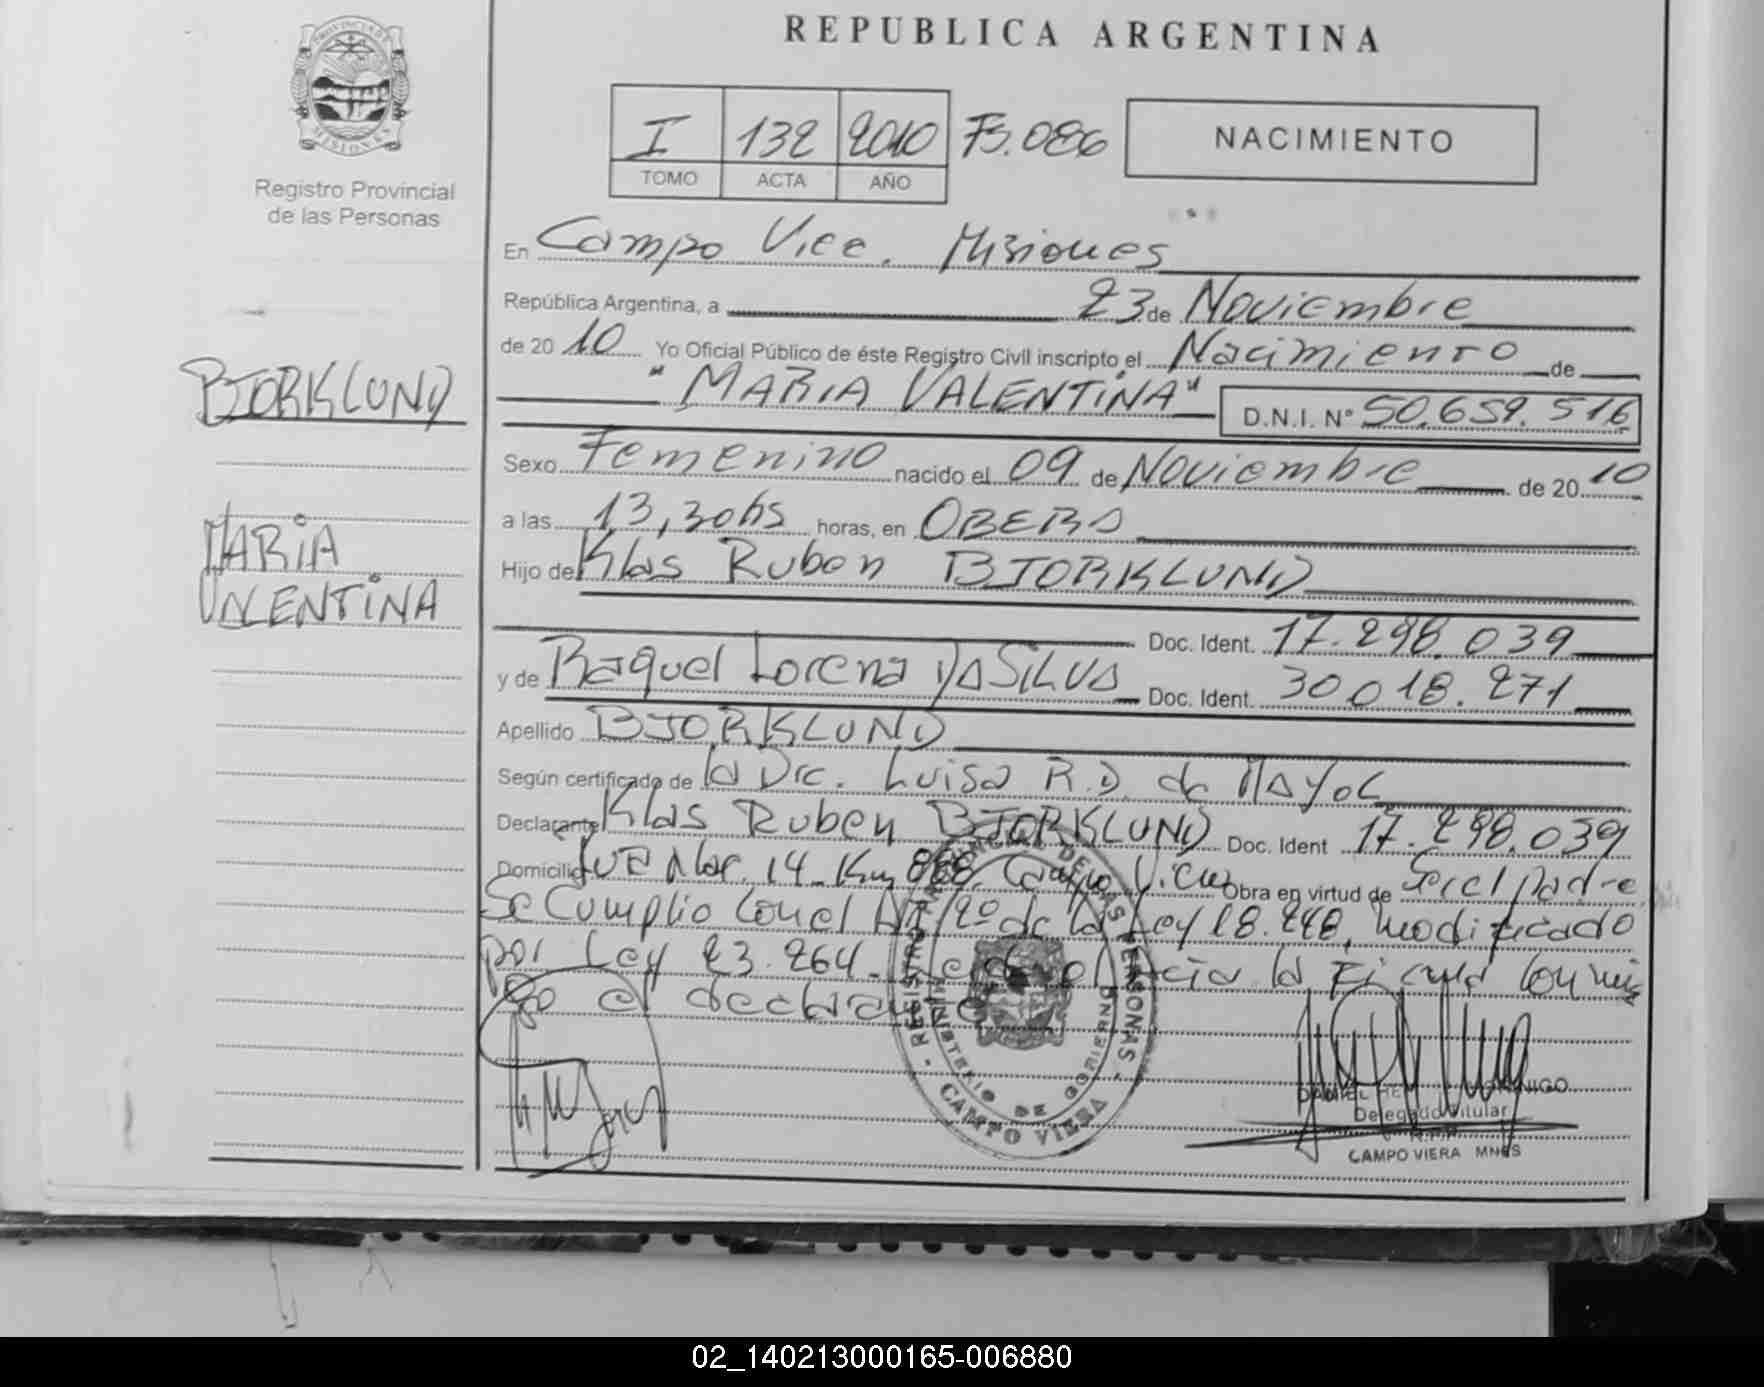 REPUBLICA ARGENTINA
PROVINCIA DE MISIONES
Registro Provincial
de las Personas
I 132 2010 Fs. 086
TOMO ACTA AÑO
NACIMIENTO
En Campo Viera. Misiones
República Argentina, a 23 de Noviembre
de 20 10 Yo Oficial Público de éste Registro Civil inscripto el Nacimiento de
"MARIA VALENTINA" D.N.I. N° 50.659.516
BJORKLUND
Sexo Femenino nacido el 09 de Noviembre de 20 10
a las 13,30hs horas, en OBERA
MARIA
VALENTINA
Hijo de Klas Ruben BJORKLUND
Doc. Ident. 17.298.039
y de Raquel Lorena DASILVA Doc. Ident. 30.018.271
Apellido BJORKLUND
Según certificado de la Dra. Luisa R.D. de MAYOL
Declarante Klas Ruben BJORKLUND Doc. Ident 17.298.039
Domicilio Nac. 14 Km Campo Viera Obra en virtud de Ser el padre
Se Cumplio con el Art 2º de la Ley 18.248, modificado
por Ley 23.264. la Firma conmi
go el declarante
REGISTRO PROVINCIAL DE LAS PERSONAS
MINISTERIO DE GOBIERNO
CAMPO VIERA
DANIEL
Delegado Titular
R.P.P.
CAMPO VIERA MNES
02_140213000165-006880